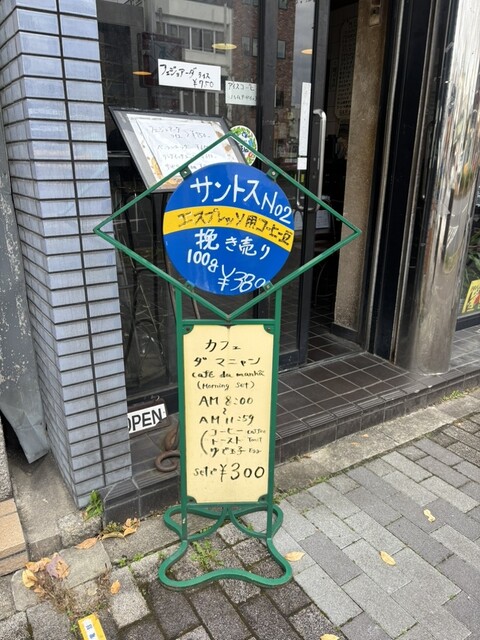 フェジョアーダ ライス
¥750
アイスコーヒー
サントス No2
エスプレッソ用コーヒー豆
挽き売り
100g
¥380
カフェ
ダ マニャン
café da manhã
(Morning Set)
AM 8:00
~
AM 11:59
コーヒー
トースト Toast
ゆで玉子 Egg
set ¥300
OPEN